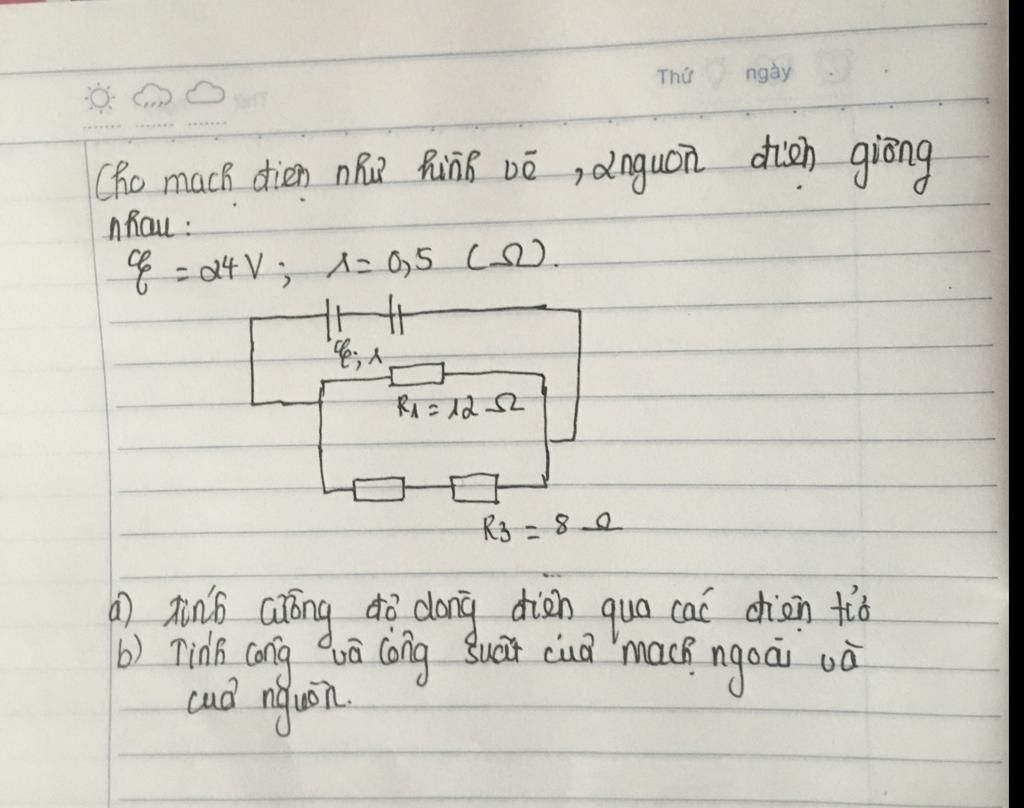 Thứ ngày
Cho mạch điện như hình vẽ, 2 nguồn điện giống
nhau:
ξ = 24V; r = 0,5 (Ω).
ξ; r
R1 = 12 Ω
R3 = 8 Ω
a) Tính cường độ dòng điện qua các điện tỏ
b) Tính công và công suất của mạch ngoài và
của nguồn.